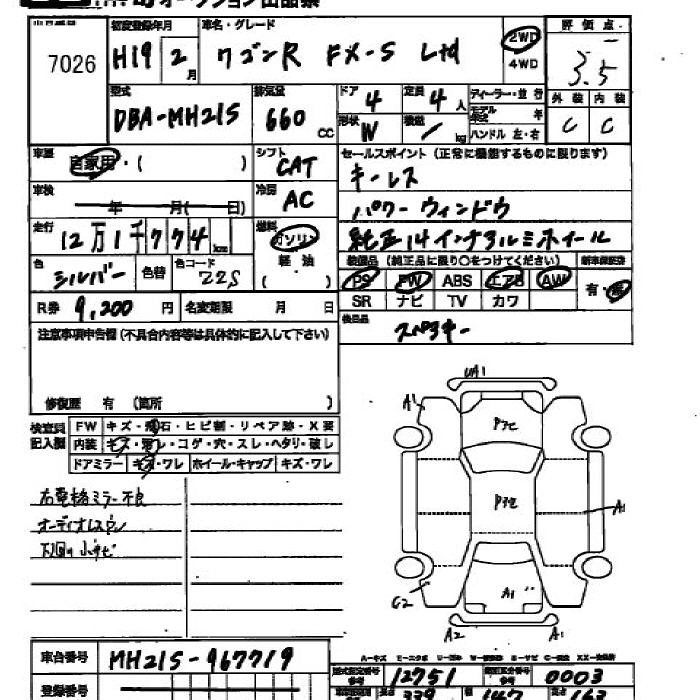 7026
初度登録年月 車名・グレード
H19 2月 ワゴンR FX-S Ltd
2WD
4WD
評価点
3.5
外装 内装
C C
型式 排気量 ドア 定員 ディーラー・並行
DBA-MH21S 660 CC 4 4人
モデル 年
形状 積載 kg ハンドル 左・右
車歴 自家用・( )
シフト CAT
セールスポイント(正常に機能するものに限ります)
キーレス
パワーウィンドウ
純正14インチアルミホイール
車検 年 月( 日)
冷房 AC
走行 12万1千774km
燃料 ガソリン
軽油
( )
色 シルバー 色替 色コード Z2S
装備品(純正品に限り○をつけてください) 新車保証書
PS PW ABS エアB AW 有・無
SR ナビ TV カワ
R券 9,200円 名変期限 月 日
後日品 スペアキー
注意事項申告欄(不具合内容等は具体的に記入して下さい)
修復歴 有(箇所 )
検査員記入欄
FW キズ・飛石・ヒビ割・リペア跡・X要
内装 キズ・汚レ・コゲ・穴・スレ・ヘタリ・破レ
ドアミラー キズ・ワレ ホイール・キャップ キズ・ワレ
右電格ミラー不良
オーディオレスワン
下回り小サビ
UA1
A1
P7セ
P7セ
A1
A1
G2
A2 A1
A-キズ
車台番号 MH21S-967719
型式指定番号 12751 類別区分番号 0003
登録番号
339 147 163